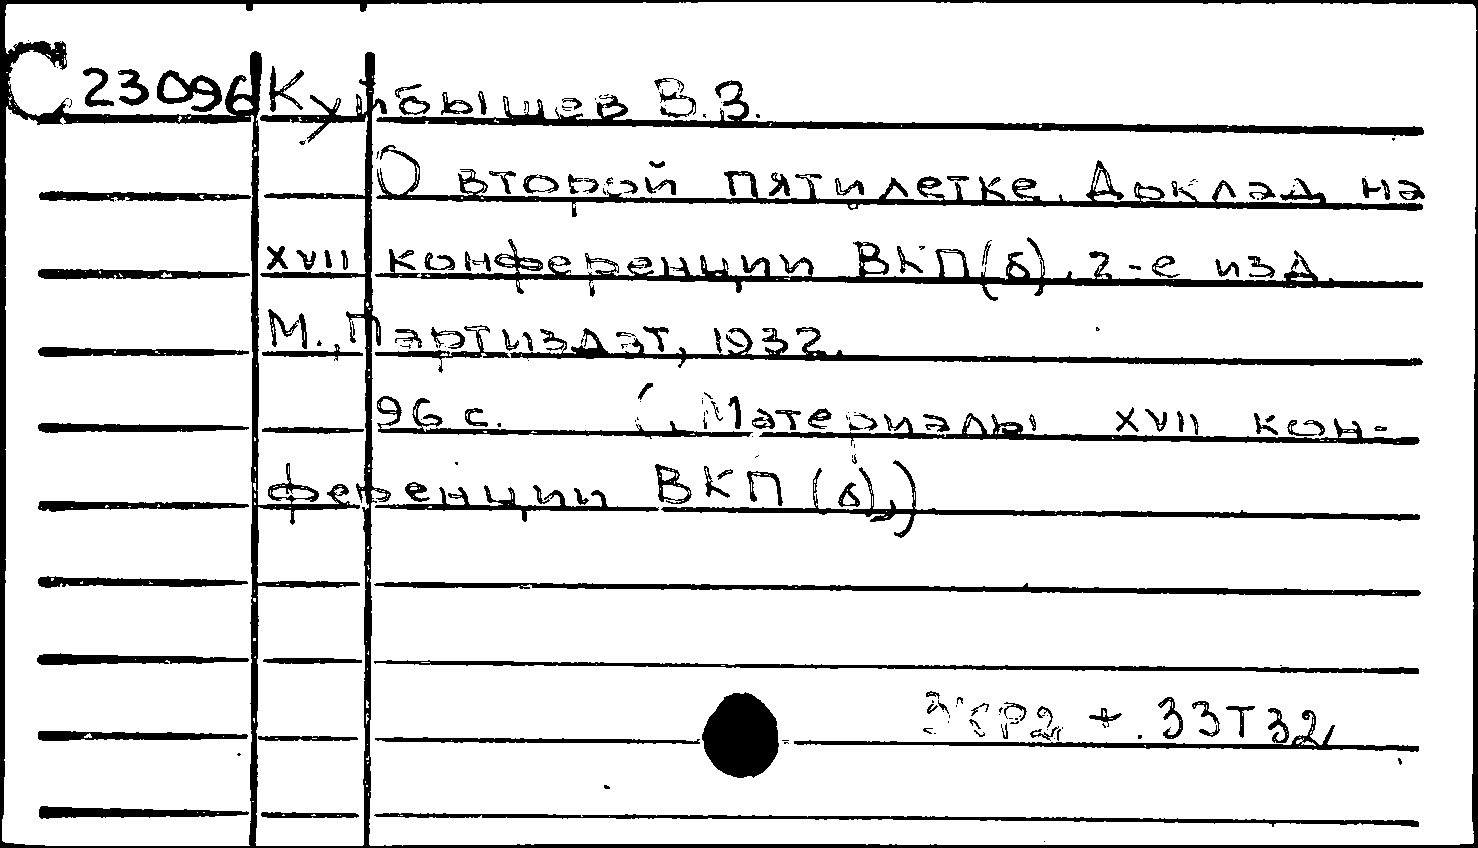 С 23096 Куйбышев В.В.
О второй пятилетке. Доклад на
XVII конференции ВКП(б). 2-е изд.
М., Партиздат, 1932.
96 с. (Материалы XVII кон-
ференции ВКП(б),)
3КР2 + 33Т32